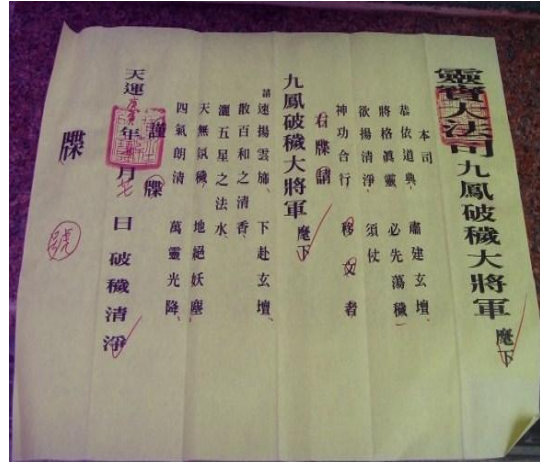 靈寶大法司九鳳破穢大將軍麾下
本司
恭依道典、肅建玄壇、
將格眞靈必先蕩穢、
欲揚清淨、須仗
神功合行移文者
右牒請
九鳳破穢大將軍麾下
請速揚雲旆、下赴玄壇、
散百和之清香、
灑五星之法水、
天無氛穢、地絕妖塵、
四氣朗清萬靈光降、
謹牒
天運年月日破穢清淨
牒
號